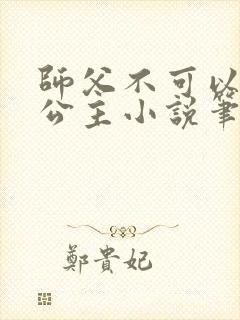 師父不可以
公主小説筆
鄭貴妃